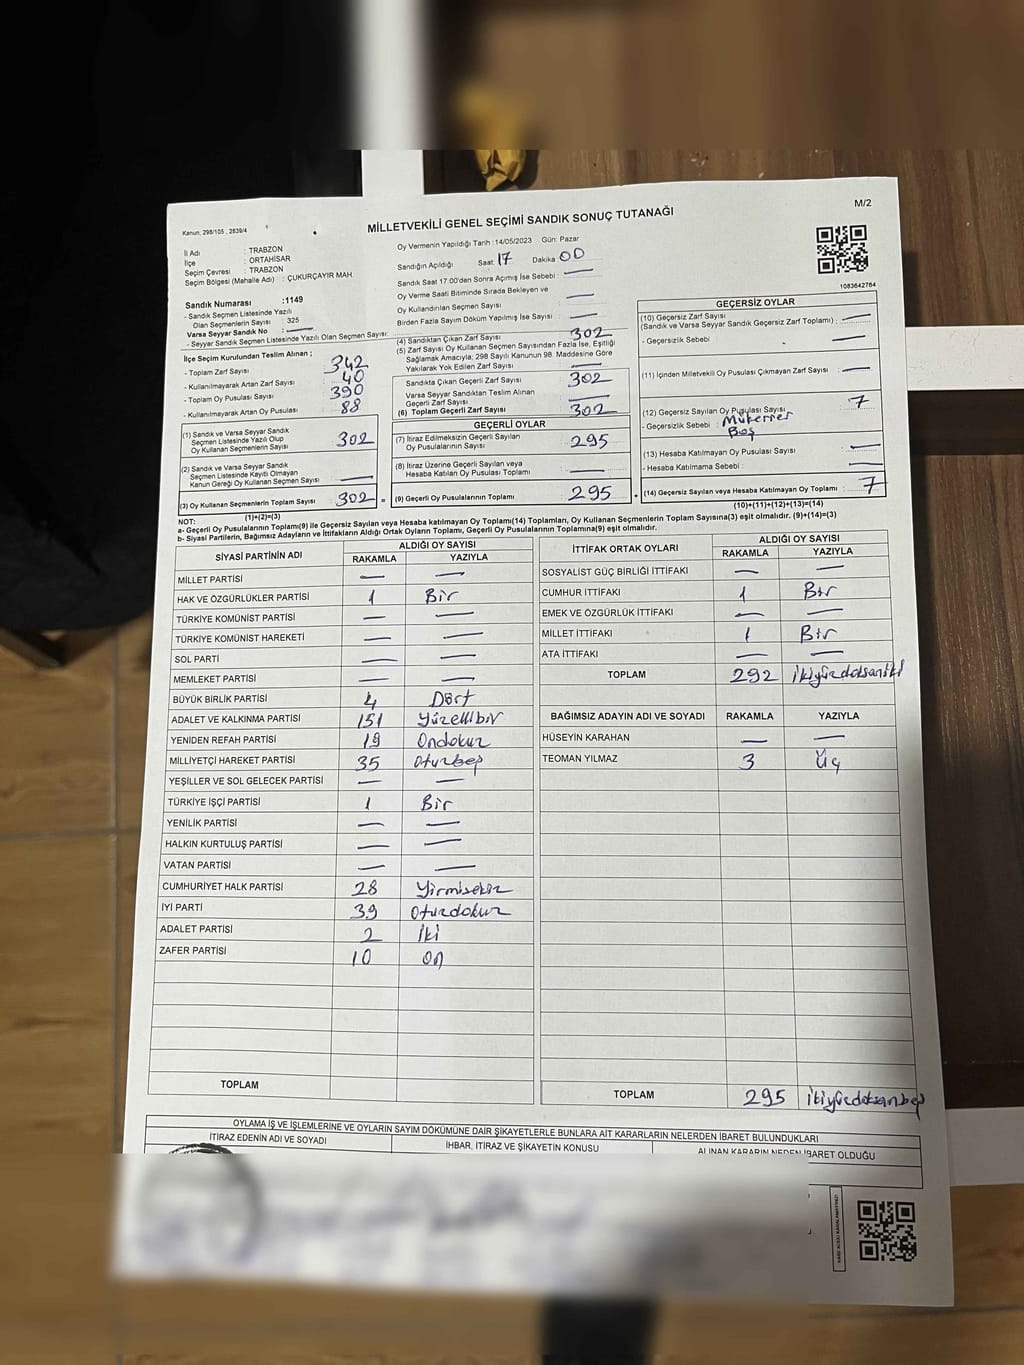 Kanun; 298/105 ; 2839/4
MİLLETVEKİLİ GENEL SEÇİMİ SANDIK SONUÇ TUTANAĞI
M/2
İl Adı : TRABZON
İlçe : ORTAHİSAR
Seçim Çevresi : TRABZON
Seçim Bölgesi (Mahalle Adı) : ÇUKURÇAYIR MAH.
Sandık Numarası :1149
- Sandık Seçmen Listesinde Yazılı
Olan Seçmenlerin Sayısı : 325
Varsa Seyyar Sandık No : —
- Seyyar Sandık Seçmen Listesinde Yazılı Olan Seçmen Sayısı:
İlçe Seçim Kurulundan Teslim Alınan ;
- Toplam Zarf Sayısı : 342
- Kullanılmayarak Artan Zarf Sayısı : 40
- Toplam Oy Pusulası Sayısı : 390
- Kullanılmayarak Artan Oy Pusulası : 88
(1) Sandık ve Varsa Seyyar Sandık
Seçmen Listesinde Yazılı Olup
Oy Kullanan Seçmenlerin Sayısı 302
(2) Sandık ve Varsa Seyyar Sandık
Seçmen Listesinde Kayıtlı Olmayan
Kanun Gereği Oy Kullanan Seçmen Sayısı —
(3) Oy Kullanan Seçmenlerin Toplam Sayısı 302 =
(1)+(2)=(3)
Oy Vermenin Yapıldığı Tarih : 14/05/2023 Gün: Pazar
Sandığın Açıldığı Saat: 17 Dakika: 00
Sandık Saat 17:00'den Sonra Açılmış İse Sebebi : —
Oy Verme Saati Bitiminde Sırada Bekleyen ve
Oy Kullandırılan Seçmen Sayısı —
Birden Fazla Sayım Döküm Yapılmış İse Sayısı : —
(4) Sandıktan Çıkan Zarf Sayısı 302
(5) Zarf Sayısı Oy Kullanan Seçmen Sayısından Fazla İse, Eşitliği
Sağlamak Amacıyla; 298 Sayılı Kanunun 98. Maddesine Göre
Yakılarak Yok Edilen Zarf Sayısı: —
Sandıkta Çıkan Geçerli Zarf Sayısı 302
Varsa Seyyar Sandıktan Teslim Alınan
Geçerli Zarf Sayısı —
(6) Toplam Geçerli Zarf Sayısı 302
GEÇERLİ OYLAR
(7) İtiraz Edilmeksizin Geçerli Sayılan
Oy Pusulalarının Sayısı 295
(8) İtiraz Üzerine Geçerli Sayılan veya
Hesaba Katılan Oy Pusulası Toplamı —
(9) Geçerli Oy Pusulalarının Toplamı 295
1083642764
GEÇERSİZ OYLAR
(10) Geçersiz Zarf Sayısı
(Sandık ve Varsa Seyyar Sandık Geçersiz Zarf Toplamı) : —
- Geçersizlik Sebebi : —
(11) İçinden Milletvekili Oy Pusulası Çıkmayan Zarf Sayısı : —
(12) Geçersiz Sayılan Oy Pusulası Sayısı : 7
- Geçersizlik Sebebi : Mükerrer
Boş
(13) Hesaba Katılmayan Oy Pusulası Sayısı —
- Hesaba Katılmama Sebebi : —
(14) Geçersiz Sayılan veya Hesaba Katılmayan Oy Toplamı : 7
(10)+(11)+(12)+(13)=(14)
NOT:
a- Geçerli Oy Pusulalarının Toplamı(9) ile Geçersiz Sayılan veya Hesaba katılmayan Oy Toplamı(14) Toplamları, Oy Kullanan Seçmenlerin Toplam Sayısına(3) eşit olmalıdır. (9)+(14)=(3)
b- Siyasi Partilerin, Bağımsız Adayların ve İttifakların Aldığı Ortak Oyların Toplamı, Geçerli Oy Pusulalarının Toplamına(9) eşit olmalıdır.
SİYASİ PARTİNİN ADI ALDIĞI OY SAYISI
RAKAMLA YAZIYLA
MİLLET PARTİSİ — —
HAK VE ÖZGÜRLÜKLER PARTİSİ 1 Bir
TÜRKİYE KOMÜNİST PARTİSİ — —
TÜRKİYE KOMÜNİST HAREKETİ — —
SOL PARTİ — —
MEMLEKET PARTİSİ — —
BÜYÜK BİRLİK PARTİSİ 4 Dört
ADALET VE KALKINMA PARTİSİ 151 Yüzellibir
YENİDEN REFAH PARTİSİ 19 Ondokuz
MİLLİYETÇİ HAREKET PARTİSİ 35 Otuzbeş
YEŞİLLER VE SOL GELECEK PARTİSİ — —
TÜRKİYE İŞÇİ PARTİSİ 1 Bir
YENİLİK PARTİSİ — —
HALKIN KURTULUŞ PARTİSİ — —
VATAN PARTİSİ — —
CUMHURİYET HALK PARTİSİ 28 Yirmisekiz
İYİ PARTİ 39 Otuzdokuz
ADALET PARTİSİ 2 İki
ZAFER PARTİSİ 10 On
TOPLAM
İTTİFAK ORTAK OYLARI ALDIĞI OY SAYISI
RAKAMLA YAZIYLA
SOSYALIST GÜÇ BİRLİĞİ İTTİFAKI — —
CUMHUR İTTİFAKI 1 Bir
EMEK VE ÖZGÜRLÜK İTTİFAKI — —
MİLLET İTTİFAKI 1 Bir
ATA İTTİFAKI — —
TOPLAM 292 İkiyüzdoksaniki
BAĞIMSIZ ADAYIN ADI VE SOYADI RAKAMLA YAZIYLA
HÜSEYİN KARAHAN — —
TEOMAN YILMAZ 3 Üç
TOPLAM 295 İkiyüzdoksanbeş
OYLAMA İŞ VE İŞLEMLERİNE VE OYLARIN SAYIM DÖKÜMÜNE DAİR ŞİKAYETLERLE BUNLARA AİT KARARLARIN NELERDEN İBARET BULUNDUKLARI
İTİRAZ EDENİN ADI VE SOYADI İHBAR, İTİRAZ VE ŞİKAYETİN KONUSU ALINAN KARARIN NEDEN İBARET OLDUĞU